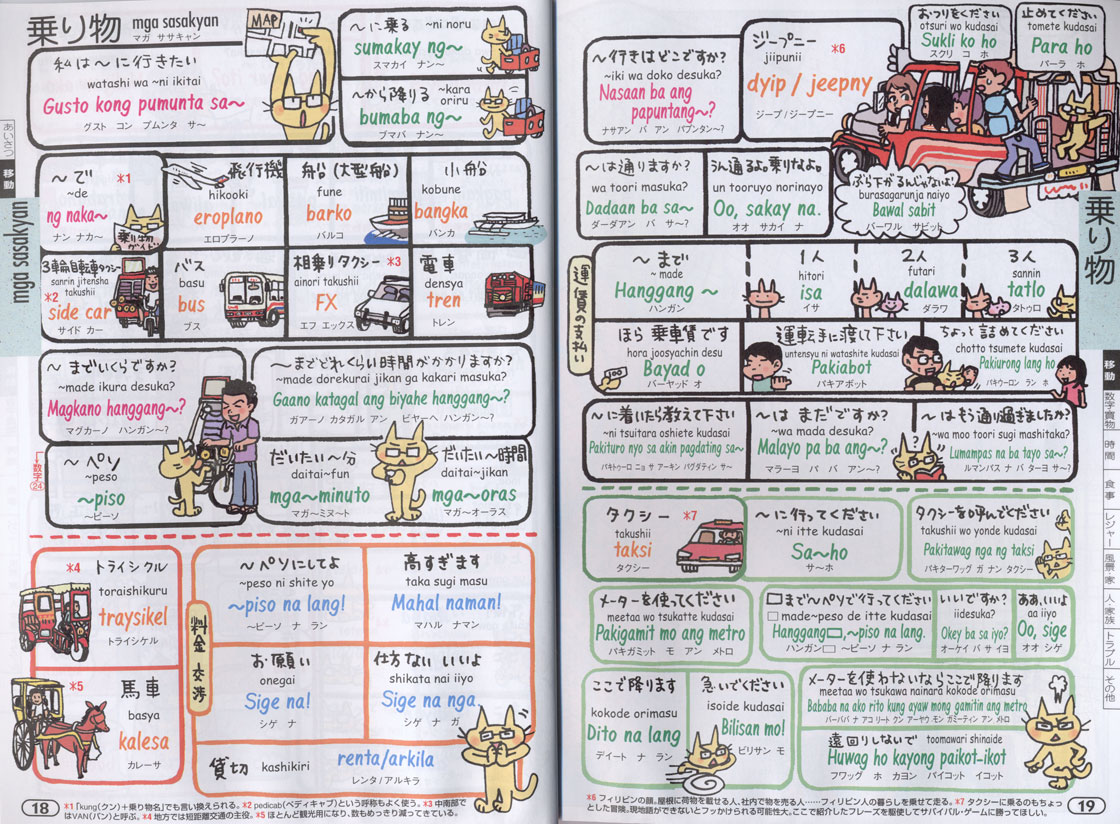 乗り物 mga sasakyan
マガ ササキャン
MAP
私は〜に行きたい
watashi wa ~ni ikitai
Gusto kong pumunta sa~
グスト コン プムンタ サ〜
〜に乗る ~ni noru
sumakay ng~
スマカイ ナン〜
〜から降りる ~kara oriru
bumaba ng~
ブマバ ナン〜
あいさつ
移動
mga sasakyan
〜で *1
~de
ng naka~
ナン ナカ〜
乗り物ガイド
飛行機
hikooki
eroplano
エロプラーノ
船(大型船)
fune
barko
バルコ
小船
kobune
bangka
バンカ
3輪自転車タクシー
sanrin jitensha takushii
*2 side car
サイド カー
バス
basu
bus
ブス
相乗りタクシー *3
ainori takushii
FX
エフ エックス
電車
densya
tren
トレン
〜までいくらですか?
~made ikura desuka?
Magkano hanggang~?
マグカーノ ハンガン〜?
〜までどれくらい時間がかかりますか?
~made dorekurai jikan ga kakari masuka?
Gaano katagal ang biyahe hanggang~?
ガアーノ カタガル アン ビヤーヘ ハンガン〜?
数字24
〜ペソ
~peso
~piso
〜ピーソ
だいたい〜分
daitai~fun
mga~minuto
マガ〜ミヌート
だいたい〜時間
daitai~jikan
mga~oras
マガ〜オーラス
*4 トライシクル
toraishikuru
traysikel
トライシケル
*5 馬車
basya
kalesa
カレーサ
料金交渉
〜ペソにしてよ
~peso ni shite yo
~piso na lang!
〜ピーソ ナ ラン
高すぎます
taka sugi masu
Mahal naman!
マハル ナマン
お願い
onegai
Sige na!
シゲ ナ
仕方ない いいよ
shikata nai iiyo
Sige na nga.
シゲ ナ ガ
貸切 kashikiri
renta/arkila
レンタ/アルキラ
18
*1「kung(クン)+乗り物名」でも言い換えられる。*2 pedicab(ペディキャブ)という呼称もよく使う。*3 中南部で
はVAN(バン)と呼ぶ。*4 地方では短距離交通の主役。*5 ほとんど観光用になり、数もめっきり減ってきている。
〜行きはどこですか?
~iki wa doko desuka?
Nasaan ba ang papuntang~?
ナサアン バ アン パプンタン〜?
ジープニー *6
jiipunii
dyip / jeepny
ジープ/ジープニー
おつりをください
otsuri wo kudasai
Sukli ko ho
スクリ コ ホ
止めてください
tomete kudasai
Para ho
パーラ ホ
〜は通りますか?
wa toori masuka?
Dadaan ba sa~?
ダーダアン バ サ〜?
うん通るよ。乗りなよ。
un tooruyo norinayo
Oo, sakay na.
オオ サカイ ナ
ぶら下がるんじゃないよ!
burasagarunja naiyo
Bawal sabit
バーワル サビット
乗り物
運賃の支払い
〜まで
~made
Hanggang ~
ハンガン
1人
hitori
isa
イサ
2人
futari
dalawa
ダラワ
3人
sannin
tatlo
タトゥロ
ほら 乗車賃です
hora joosyachin desu
Bayad o
バーヤッド オ
運転手に渡して下さい
untensyu ni watashite kudasai
Pakiabot
パキアボット
ちょっと詰めてください
chotto tsumete kudasai
Pakiurong lang ho
パキウーロン ラン ホ
〜に着いたら教えて下さい
~ni tsuitara oshiete kudasai
Pakituro nyo sa akin pagdating sa~
パキトゥーロ ニョ サ アーキン パグダティン サ〜
〜は まだですか?
~wa mada desuka?
Malayo pa ba ang~?
マラーヨ パ バ アン〜?
〜はもう通り過ぎましたか?
~wa moo toori sugi mashitaka?
Lumampas na ba tayo sa~?
ルマンパス ナ バ ターヨ サ〜?
タクシー *7
takushii
taksi
タクシー
〜に行ってください
~ni itte kudasai
Sa~ho
サ〜ホ
タクシーを呼んでください
takushii wo yonde kudasai
Pakitawag nga ng taksi
パキターワッグ ガ ナン タクシー
メーターを使ってください
meetaa wo tsukatte kudasai
Pakigamit mo ang metro
パキガミット モ アン メトロ
□まで〜ペソで行ってください
□made~peso de itte kudasai
Hanggang□,~piso na lang.
ハンガン□ 〜ピーソ ナ ラン
いいですか?
iidesuka?
Okey ba sa iyo?
オーケイ バ サ イヨ
ああ、いいよ
aa iiyo
Oo, sige
オオ シゲ
ここで降ります
kokode orimasu
Dito na lang
ディート ナ ラン
急いでください
isoide kudasai
Bilisan mo!
ビリサン モ
メーターを使わないならここで降ります
meetaa wo tsukawa nainara kokode orimasu
Bababa na ako rito kung ayaw mong gamitin ang metro
バーババ ナ アコ リート クン アーヤウ モン ガミーティン アン メトロ
遠回りしないで toomawari shinaide
Huwag ho kayong paikot-ikot
フワッグ ホ カヨン パイコット イコット
移動
数字買物
時間
食事
レジャー
風景・家
人・家族
トラブル
その他
*6 フィリピンの顔。屋根に荷物を載せる人、社内で物を売る人……フィリピン人の暮らしを乗せて走る。*7 タクシーに乗るのもちょっ
とした冒険。現地語ができないとフッかけられる可能性大。ここで紹介したフレーズを駆使してサバイバル・ゲームに勝ってほしい。
19